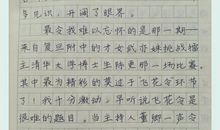 多见识，开阔了眼界。
最令我难以忘怀的是那一期——
来自复旦附中的才女武亦姝挑战擂
主清华大学博士生陈更那一场比赛。
其中最为精彩的莫过于飞花令环节
了！我十分激动，早听说飞花令是
很难的题目，当主持人董卿一声令